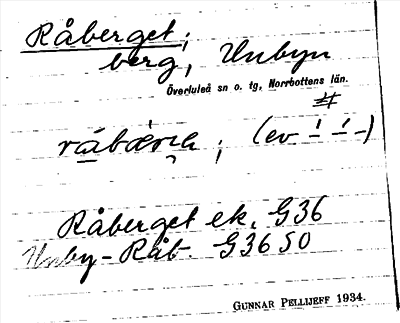 Råberget;
berg, Unbyn
Överluleå sn o. tg, Norrbottens län.
(ev
Råberget ek. G36
Unby-Råb. G36 50
GUNNAR PELLIJEFF 1934.